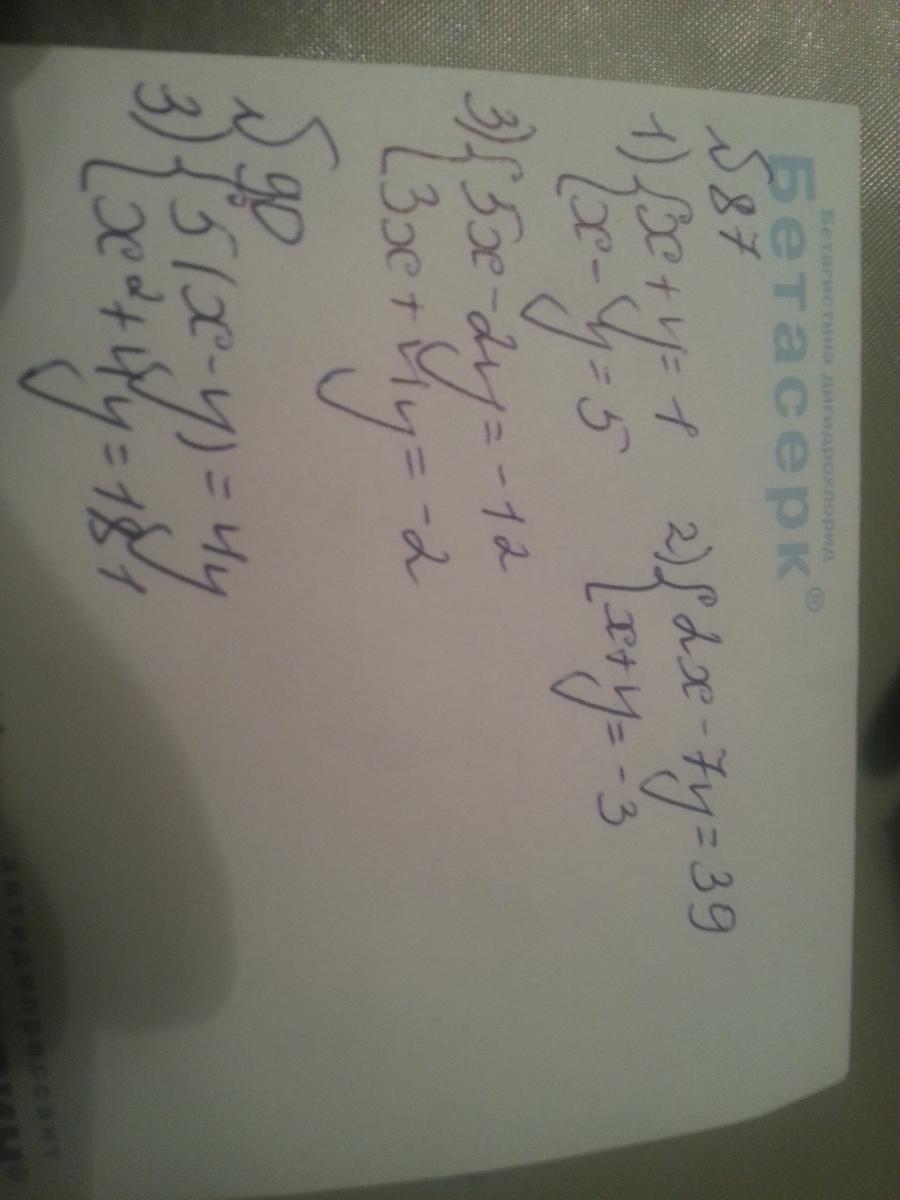 Бетагистина дигидрохлорид
Бетасерк®
№ 87
1) { x + y = 1
x - y = 5
2) { 2x - 7y = 39
x + y = -3
3) { 5x - 2y = -12
3x + 4y = -2
№ 90
3) { 5(x - y) = 4y
x² + 4y = 181
антидепрессант